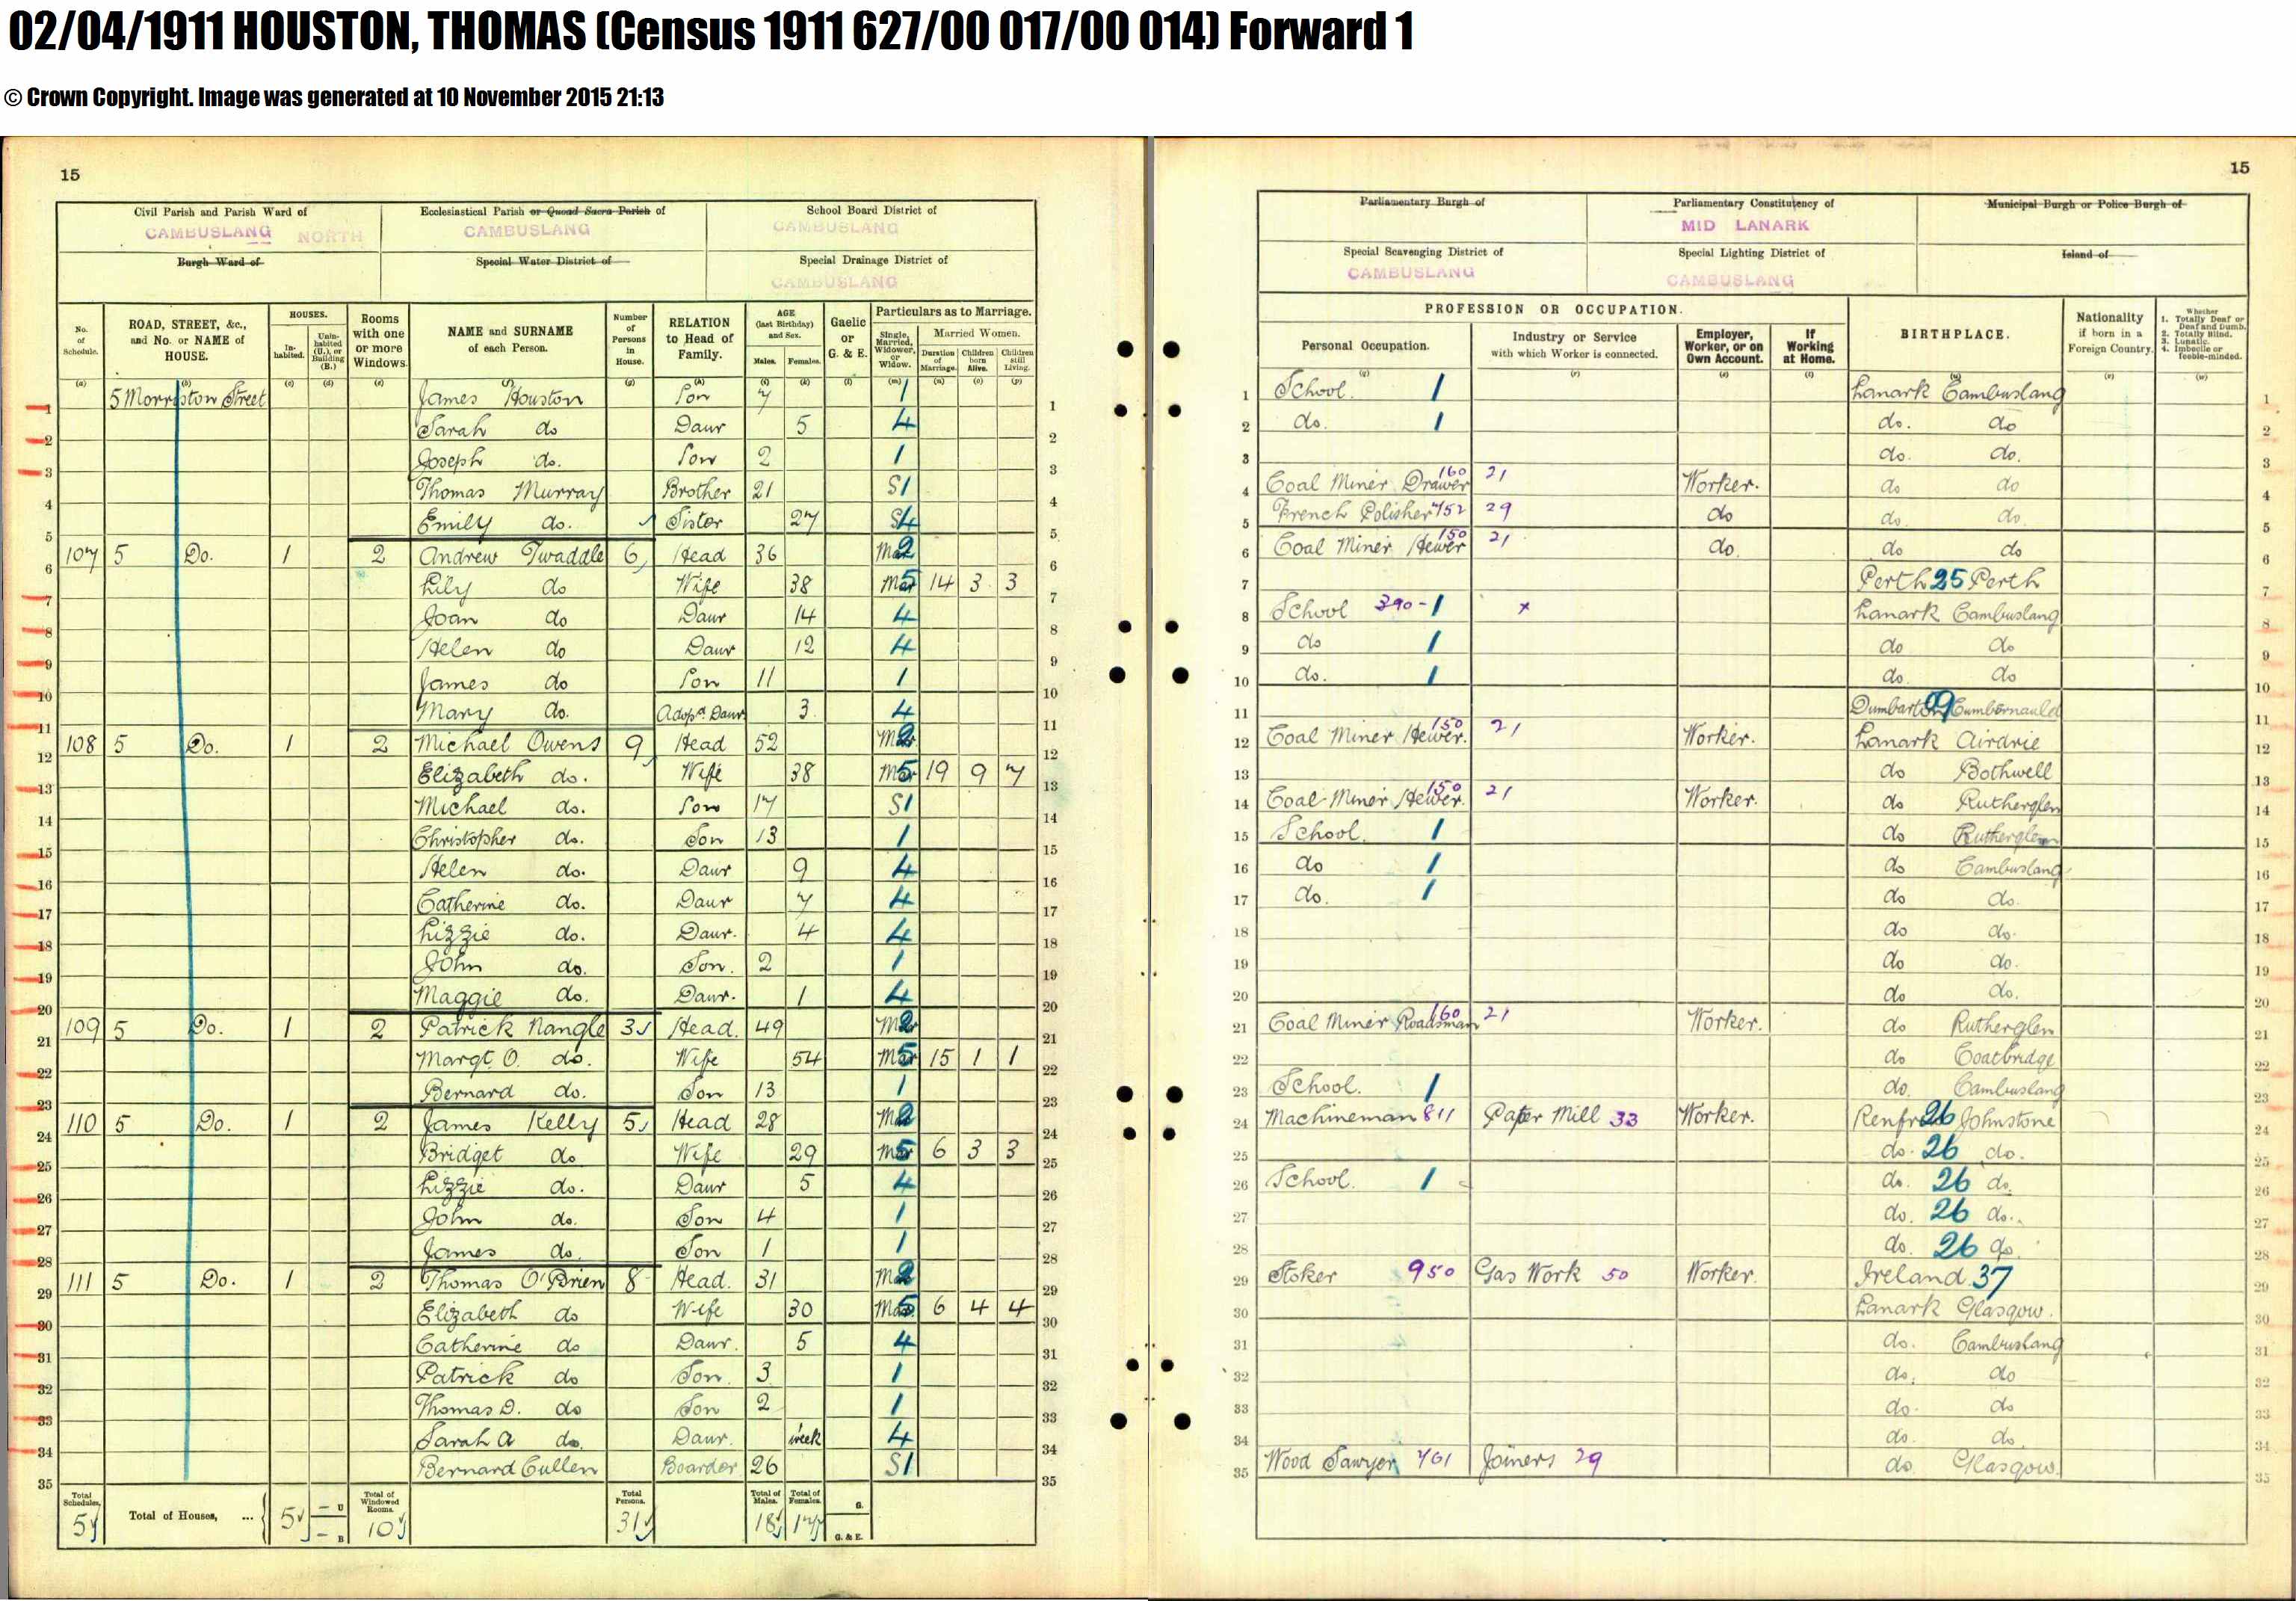 02/04/1911 HOUSTON, THOMAS (Census 1911 627/00 017/00 014) Forward 1
© Crown Copyright. Image was generated at 10 November 2015 21:13
15
15
Civil Parish and Parish Ward of CAMBUSLANG NORTH
Ecclesiastical Parish or Quoad Sacra Parish of CAMBUSLANG
School Board District of CAMBUSLANG
Parliamentary Burgh of
Parliamentary Constitutency of MID LANARK
Municipal Burgh or Police Burgh of
Burgh Ward of
Special Water District of
Special Drainage District of CAMBUSLANG
Special Scavenging District of CAMBUSLANG
Special Lighting District of CAMBUSLANG
Island of
No. of Schedule.
ROAD, STREET, &c., and No. or NAME of HOUSE.
HOUSES.
Inhabited.
Uninhabited (U.), or Building (B.)
Rooms with one or more Windows.
NAME and SURNAME of each Person.
Number of Persons in House.
RELATION to Head of Family.
AGE (last Birthday) and Sex.
Males. Females.
Gaelic or G. & E.
Particulars as to Marriage.
Single, Married, Widower, or Widow.
Married Women.
Duration of Marriage. Children born Alive. Children still Living.
PROFESSION OR OCCUPATION.
Personal Occupation.
Industry or Service with which Worker is connected.
Employer, Worker, or on Own Account.
If Working at Home.
BIRTHPLACE.
Nationality if born in a Foreign Country.
Whether 1. Totally Deaf or Deaf and Dumb. 2. Totally Blind. 3. Lunatic. 4. Imbecile or feeble-minded.
(a) (b) (c) (d) (e) (f) (g) (h) (i) (k) (l) (m) (n) (o) (p)
(q) (r) (s) (t) (u) (v) (w)
5 Morriston Street James Houston Son 7 1 1 School 1 Lanark Cambuslang 1
Sarah do Daur 5 4 2 do. 1 do. do 2
Joseph do. Son 2 1 3 do. do. 3
Thomas Murray Brother 21 S1 4 Coal Miner Drawer 160 21 Worker. do do 4
Emily do. Sister 27 S4 5 French Polisher 752 29 do do. do. 5
107 5 Do. 1 2 Andrew Twaddle 6 Head 36 Mar 2 6 Coal Miner Hewer 150 21 do. do do 6
Lily do Wife 38 Mar 5 14 3 3 7 Perth 25 Perth 7
Joan do Daur 14 4 8 School 390 - 1 x Lanark Cambuslang 8
Helen do Daur 12 4 9 do 1 do do 9
James do Son 11 1 10 do. 1 do. do 10
Mary do. Adopd. Daur 3 4 11 Dumbarton 09 Cumbernauld 11
108 5 Do. 1 2 Michael Owens 9 Head 52 Mar 2 12 Coal Miner Hewer. 150 21 Worker. Lanark Airdrie 12
Elizabeth do. Wife 38 Mar 5 19 9 7 13 do Bothwell 13
Michael do. Son 17 S1 14 Coal Miner Hewer. 150 21 Worker. do Rutherglen 14
Christopher do. Son 13 1 15 School. 1 do Rutherglen 15
Helen do. Daur 9 4 16 do 1 do Cambuslang 16
Catherine do. Daur 7 4 17 do. 1 do do. 17
Lizzie do. Daur. 4 4 18 do do. 18
John do. Son. 2 1 19 do do. 19
Maggie do. Daur. 1 4 20 do do. 20
109 5 Do. 1 2 Patrick Nangle 3 Head. 49 Mar 2 21 Coal Miner Roadsman 160 21 Worker. do Rutherglen 21
Margt. O. do. Wife 54 Mar 5 15 1 1 22 do Coatbridge 22
Bernard do. Son 13 1 23 School. 1 do. Cambuslang 23
110 5 Do. 1 2 James Kelly 5 Head 28 Mar 2 24 Machineman 811 Paper Mill 33 Worker. Renfrew 26 Johnstone 24
Bridget do Wife 29 Mar 5 6 3 3 25 do. 26 do. 25
Lizzie do. Daur 5 4 26 School. 1 do. 26 do. 26
John do. Son 4 1 27 do. 26 do. 27
James do. Son 1 1 28 do. 26 do. 28
111 5 Do. 1 2 Thomas O'Brien 8 Head. 31 Mar 2 29 Stoker 950 Gas Work 50 Worker. Ireland 37 29
Elizabeth do Wife 30 Mar 5 6 4 4 30 Lanark Glasgow. 30
Catherine do Daur. 5 4 31 do. Cambuslang 31
Patrick do Son. 3 1 32 do. do 32
Thomas D. do Son 2 1 33 do. do 33
Sarah A do. Daur. week 4 34 do. do. 34
Bernard Cullen Boarder 26 S1 35 Wood Sawyer 761 Joiners 29 do. Glasgow. 35
Total Schedules, 5
Total of Houses, ... 5 – U – B
Total of Windowed Rooms. 10
Total Persons. 31
Total of Males. 18
Total of Females. 17
G.
G. & E.